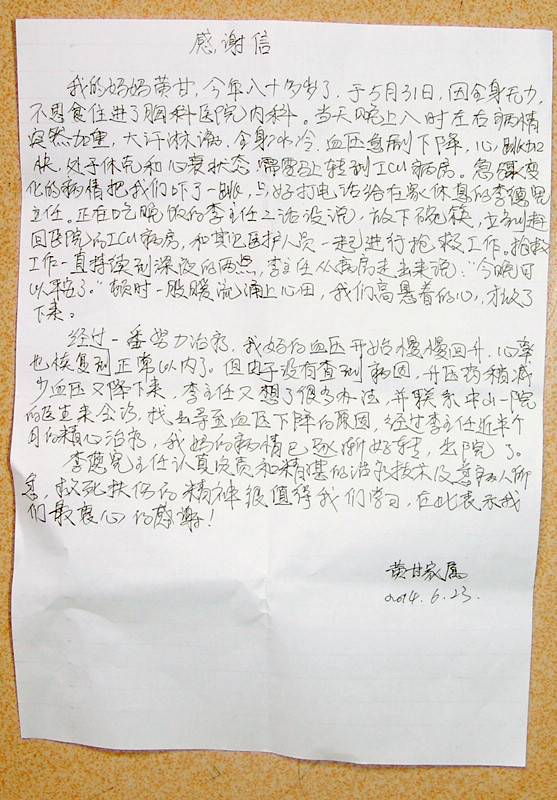 感谢信
我的妈妈黄甘，今年八十多岁了，于5月31日，因全身无力，
不思食住进了胸科医院内科。当天晚上八时左右病情
突然加重，大汗淋漓，全身冰冷，血压急剧下降，心跳加
快，处于休克和心衰状态，需要马上转到ICU病房。急骤变
化的病情把我们吓了一跳，只好打电话给在家休息的李德宪
主任。正在吃晚饭的李主任二话没说，放下碗筷，立刻赶
回医院的ICU病房，和其它医护人员一起进行抢救工作。抢救
工作一直持续到深夜两点，李主任从病房走出来说："今晚可
以平稳了。"顿时一股暖流涌上心田，我们高悬着的心，才放了
下来。
经过一番努力治疗，我妈的血压开始慢慢回升，心率
也恢复到正常以内了。但由于没有查到病因，升压药稍减
少血压又降下来，李主任又想了很多办法，并联系中山一院
的医生来会诊，找出导至血压下降的原因，经过李主任近半个
月的精心治疗，我妈的病情已逐渐好转，出院了。
李德宪主任认真负责和精湛的治疗技术及急病人所
急，救死扶伤的精神很值得我们学习，在此表示我
们最衷心的感谢！
黄甘家属
2014.6.23.